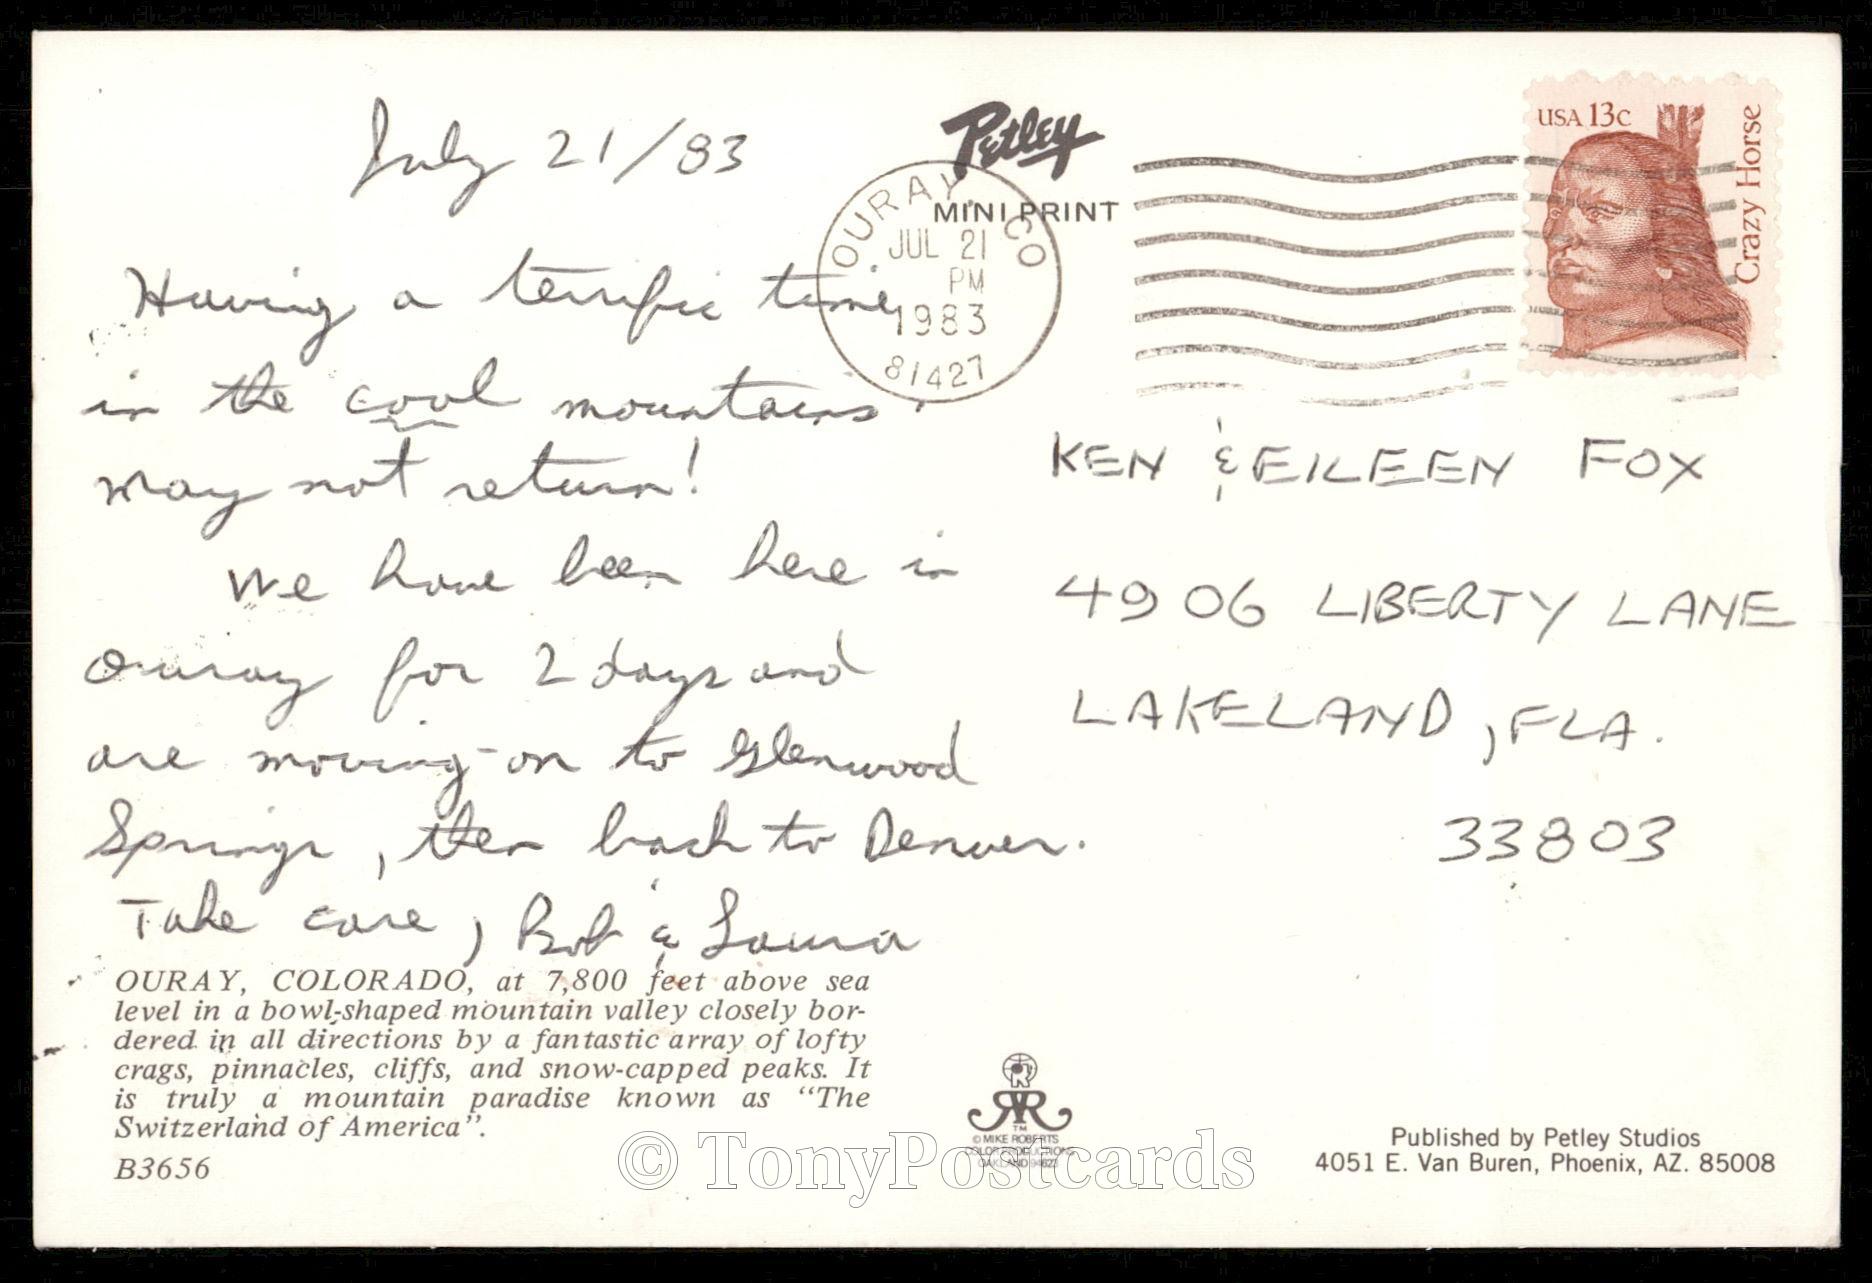 July 21/83
Having a terrific time
in the cool mountains.
May not return!
We have been here in
Ouray for 2 days and
are moving-on to Glenwood
Springs, then back to Denver.
Take care, Bob & Laura
OURAY, COLORADO, at 7,800 feet above sea
level in a bowl-shaped mountain valley closely bor-
dered in all directions by a fantastic array of lofty
crags, pinnacles, cliffs, and snow-capped peaks. It
is truly a mountain paradise known as "The
Switzerland of America".
B3656
Petley
MINI PRINT
OURAY, CO
JUL 21
PM
1983
81427
USA 13c
Crazy Horse
KEN & EILEEN FOX
4906 LIBERTY LANE
LAKELAND, FLA.
33803
TM
© MIKE ROBERTS
COLOR PRODUCTIONS
OAKLAND 94623
Published by Petley Studios
4051 E. Van Buren, Phoenix, AZ. 85008
© TonyPostcards